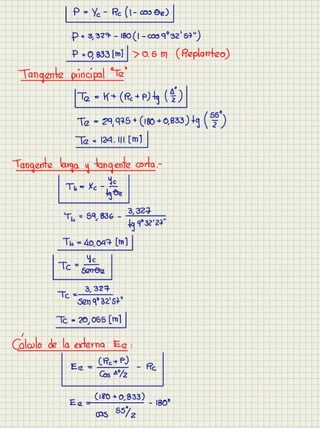 P = Yc - Rc (1 - cos θe)
P = 3,327 - 180 (1 - cos 9°32'57")
P = 0,833 [m] > 0.5 m (Replanteo)
Tangente principal "Te"
Te = K + (Rc + P) tg (Δ°/2)
Te = 29,975 + (180 + 0,833) tg (55°/2)
Te = 124.111 [m]
Tangente larga y tangente corta.-
TL = Xc - Yc/tg θe
TL = 59,836 - 3,327/tg 9°32'27"
TL = 40,047 [m]
Tc = Yc/Sen θe
Tc = 3,327/Sen 9°32'57"
Tc = 20,055 [m]
Cálculo de la externa Ee:
Ee = (Rc + P)/Cos Δ°/2 - Rc
Ee = (180 + 0,833)/cos 55°/2 - 180°